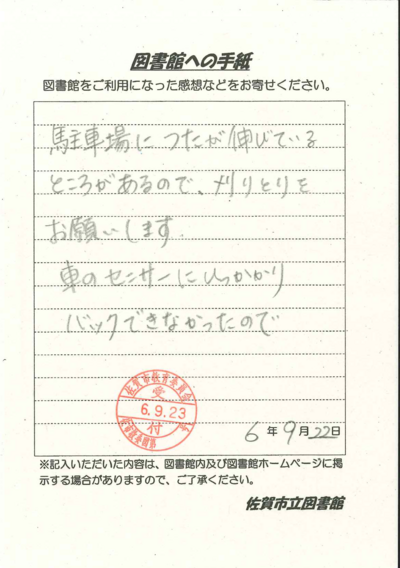 図書館への手紙
図書館をご利用になった感想などをお寄せください。
駐車場につたが伸びている
ところがあるので、刈りとりを
お願いします.
車のセンサーにひっかかり
バックできなかったので
受
6.9.23
付
6年9月22日
※記入いただいた内容は、図書館内及び図書館ホームページに掲
示する場合がありますので、ご了承ください。
佐賀市立図書館